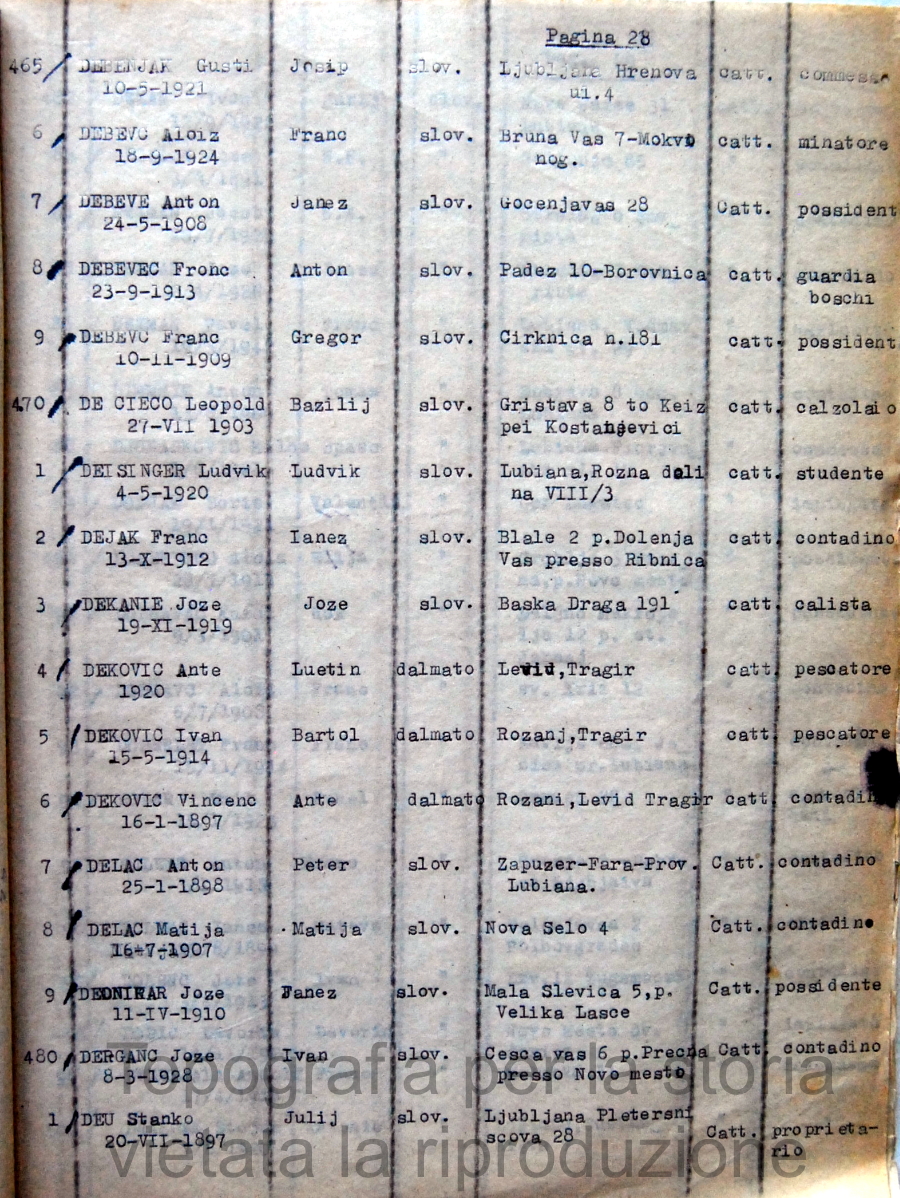 Pagina 28
465 DEBENJAK Gusti Josip slov. Ljubljana Hrenova catt. commesso
10-5-1921 ui.4
6 DEBEVC Aloiz Franc slov. Bruna Vas 7-Mokvo catt. minatore
18-9-1924 nog.
7 DEBEVE Anton Janez slov. Gocenjavas 28 Catt. possident
24-5-1908
8 DEBEVEC Fronc Anton slov. Padez 10-Borovnica catt. guardia
23-9-1913 boschi
9 DEBEVC Franc Gregor slov. Cirknica n.181 catt. possident
10-11-1909
470 DE CIECO Leopold Bazilij slov. Gristava 8 to Keiz catt. calzolaio
27-VII 1903 pei Kostanjevici
1 DEISINGER Ludvik Ludvik slov. Lubiana,Rozna doli catt. studente
4-5-1920 na VIII/3
2 DEJAK Franc Ianez slov. Blale 2 p.Dolenja catt. contadino
13-X-1912 Vas presso Ribnica
3 DEKANIE Joze Joze slov. Baska Draga 191 catt. calista
19-XI-1919
4 DEKOVIC Ante Luetin dalmato Levid,Tragir catt. pescatore
1920
5 DEKOVIC Ivan Bartol dalmato Rozanj,Tragir catt. pescatore
15-5-1914
6 DEKOVIC Vincenc Ante dalmato Rozani,Levid Tragir catt. contadi
16-1-1897
7 DELAC Anton Peter slov. Zapuzer-Fara-Prov. Catt. contadino
25-1-1898 Lubiana.
8 DELAC Matija Matija slov. Nova Selo 4 Catt. contadino
16-7-1907
9 Joze Janez slov. Mala Slevica 5,p. Catt. possidente
11-IV-1910 Velika Lasce
480 DERGANC Joze Ivan slov. Cesca vas 6 p.Precna Catt. contadino
8-3-1928 presso Novo mesto
1 DEU Stanko Julij slov. Ljubljana Pletersni
20-VII-1897 scova 28 Catt. proprieta-
rio
Topografia per la storia
vietata la riproduzione